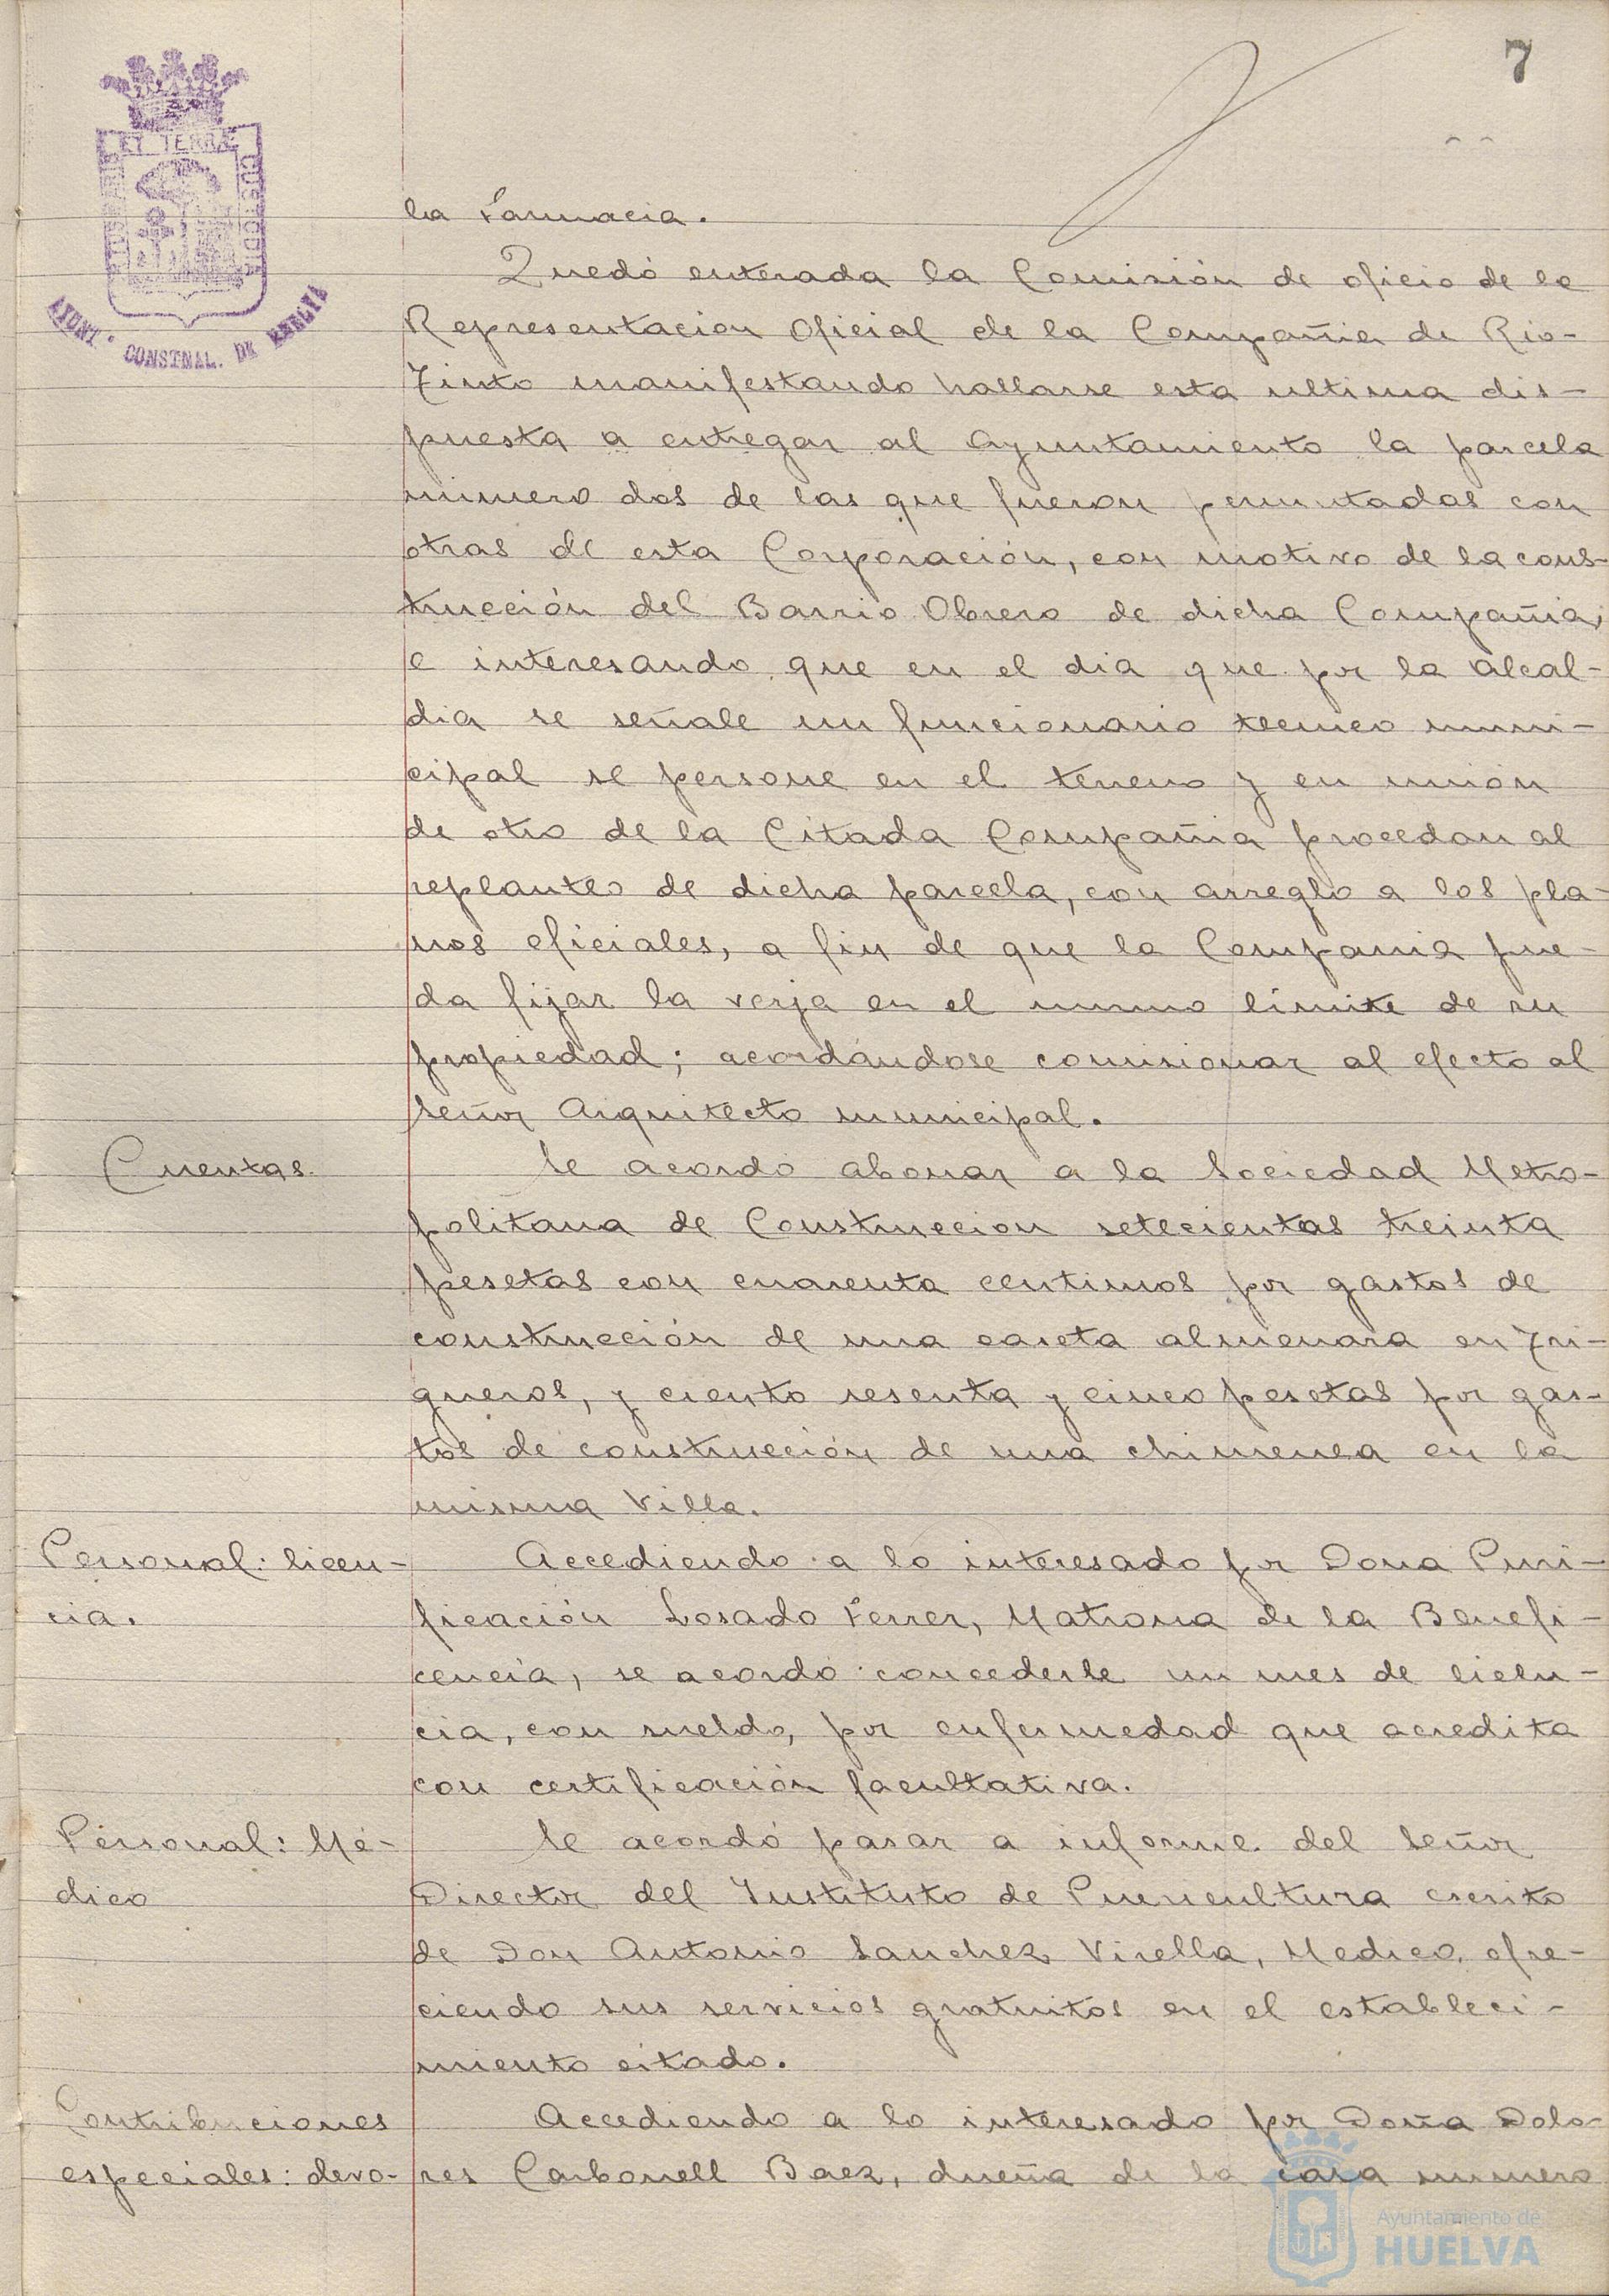 7
PORTUS MARIS ET TERRÆ CUSTODIA
AYUNT.º CONSTNAL. DE HUELVA
la Farmacia.
Quedó enterada la Comisión de oficio de la
Representacion Oficial de la Compañia de Rio-
Tinto manifestando hallarse esta ultima dis-
puesta a entregar al Ayuntamiento la parcela
numero dos de las que fueron permutadas con
otras de esta Corporación, con motivo de la cons-
trucción del Barrio Obrero de dicha Compañia,
e interesando que en el dia que por la Alcal-
dia se señale un funcionario tecnico muni-
cipal se persone en el terreno y en unión
de otro de la Citada Compañia procedan al
replanteo de dicha parcela, con arreglo a los pla-
nos oficiales, a fin de que la Compania pue-
da fijar la verja en el mismo límite de su
propiedad; acordándose comisionar al efecto al
Señor Arquitecto municipal.
Cuentas.
Se acordó abonar a la Sociedad Metro-
politana de Construccion setecientas treinta
pesetas con cuarenta centimos por gastos de
construcción de una caseta almenara en Tri-
gueros, y ciento sesenta y cinco pesetas por gas-
tos de construcción de una chimenea en la
misma Villa.
Personal: licen-
cia.
Accediendo a lo interesado por Dona Puri-
ficación Losado Ferrer, Matrona de la Benefi-
cencia, se acordó concederle un mes de licen-
cia, con sueldo, por enfermedad que acredita
con certificación facultativa.
Personal: Mé-
dico
Se acordó pasar a informe del Señor
Director del Instituto de Puericultura escrito
de Don Antonio Sanchez Virella, Medico, ofre-
ciendo sus servicios gratuitos en el estableci-
miento citado.
Contribuciones
especiales: devo-
Accediendo a lo interesado por Doña Dolo-
res Carbonell Baez, dueña de la casa numero
Ayuntamiento de
HUELVA